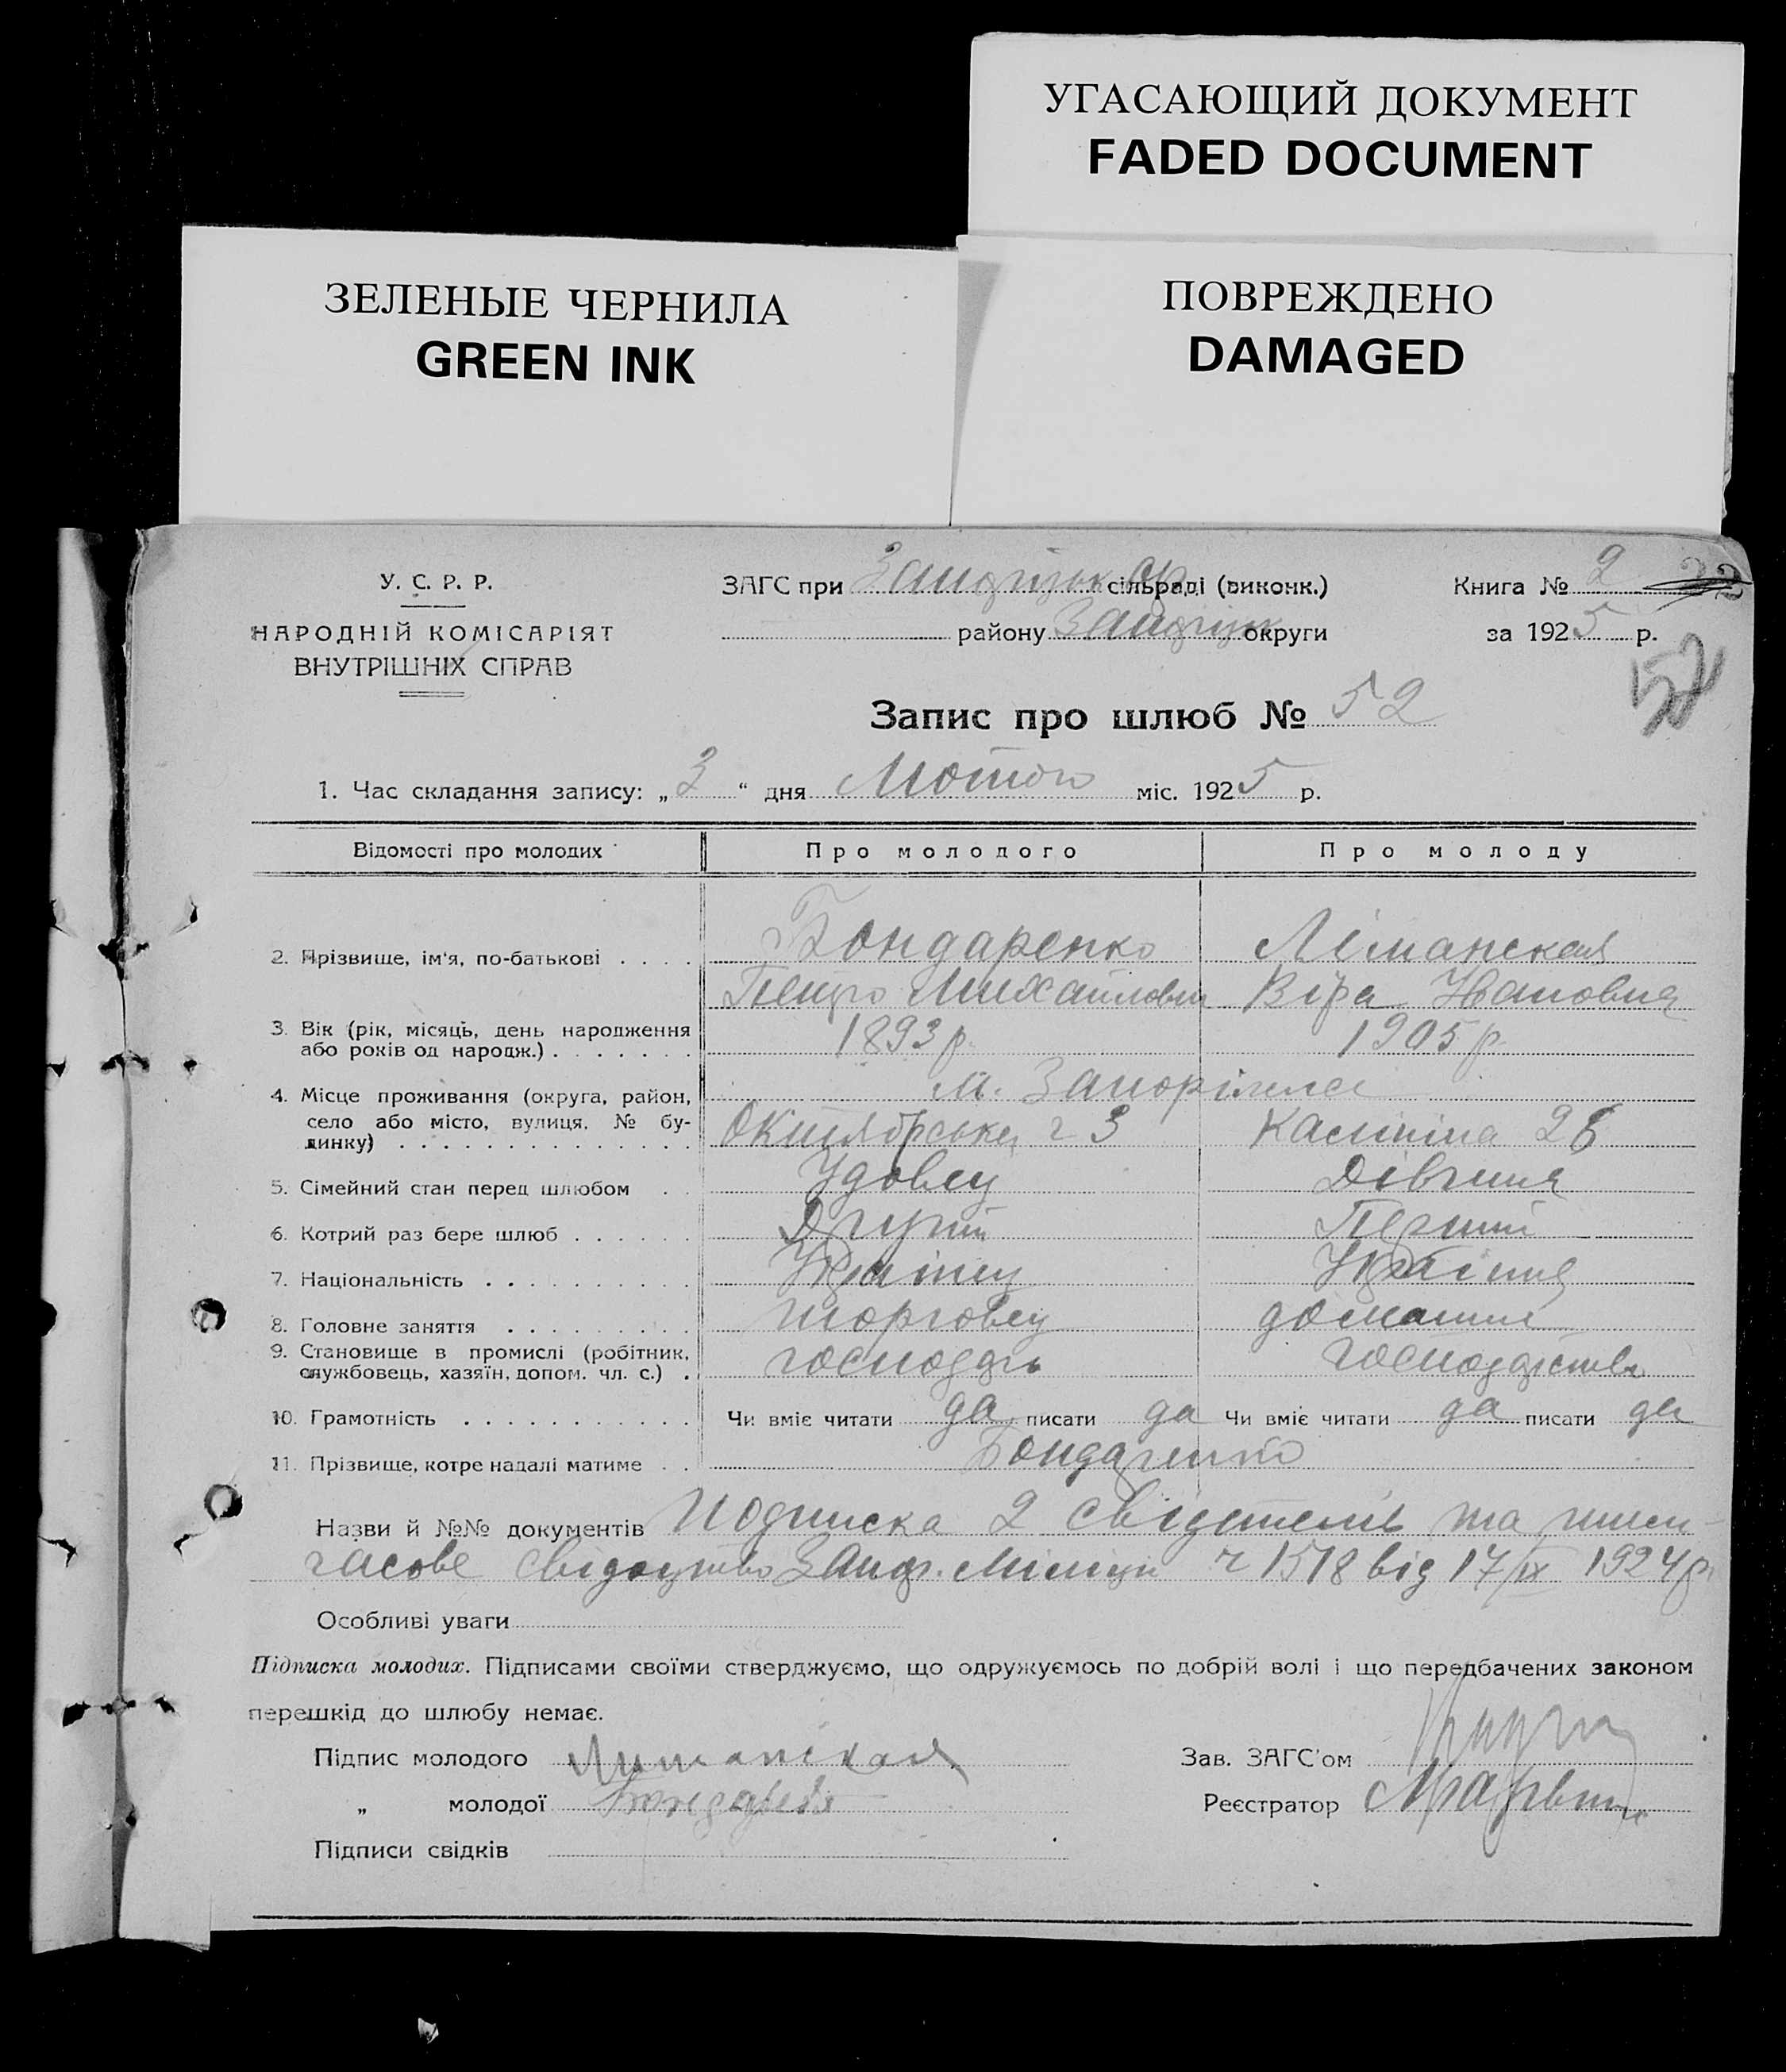 УГАСАЮЩИЙ ДОКУМЕНТ
FADED DOCUMENT
ЗЕЛЕНЫЕ ЧЕРНИЛА
GREEN INK
ПОВРЕЖДЕНО
DAMAGED
У. С. Р. Р.
НАРОДНІЙ КОМІСАРІЯТ
ВНУТРІШНІХ СПРАВ
ЗАГС при сільраді (виконк.)
району округи
Книга № 2 32
за 1925 р.
52
Запис про шлюб № 52
1. Час складання запису: „3“ дня Лютого міс. 1925 р.
Відомості про молодих Про молодого Про молоду
2. Прізвище, ім'я, по-батькові . . . . Бондаренко Ліманская
Петро Михайлович Віра Ивановна
3. Вік (рік, місяць, день народження
або років од народж.) . . . . . . . 1893 р. 1905 р.
4. Місце проживання (округа, район,
село або місто, вулиця, № бу-
динку) . . . . . . . . . . . . . .
м. Запоріжжя
Октябрська ч 3 Калініна 28
5. Сімейний стан перед шлюбом . . Удовец Дівчина
6. Котрий раз бере шлюб . . . . . . Другій Перший
7. Національність . . . . . . . . . . Українец Українка
8. Головне заняття . . . . . . . . . торговец домашнє
9. Становище в промислі (робітник,
службовець, хазяїн, допом. чл. с.) . господарь господарство
10. Грамотність . . . . . . . . . . . Чи вміє читати да писати да Чи вміє читати да писати да
11. Прізвище, котре надалі матиме . . Бондаренко
Назви й №№ документів Подписка 2 свідетелів та тим-
часове свідоцтво Запор. Міліції ч 1518 від 17/IX 1924 р.
Особливі уваги
Підписка молодих. Підписами своїми стверджуємо, що одружуємось по добрій волі і що передбачених законом
перешкід до шлюбу немає.
Підпис молодого Лиманская
„ молодої
Підписи свідків
Зав. ЗАГС'ом
Реєстратор